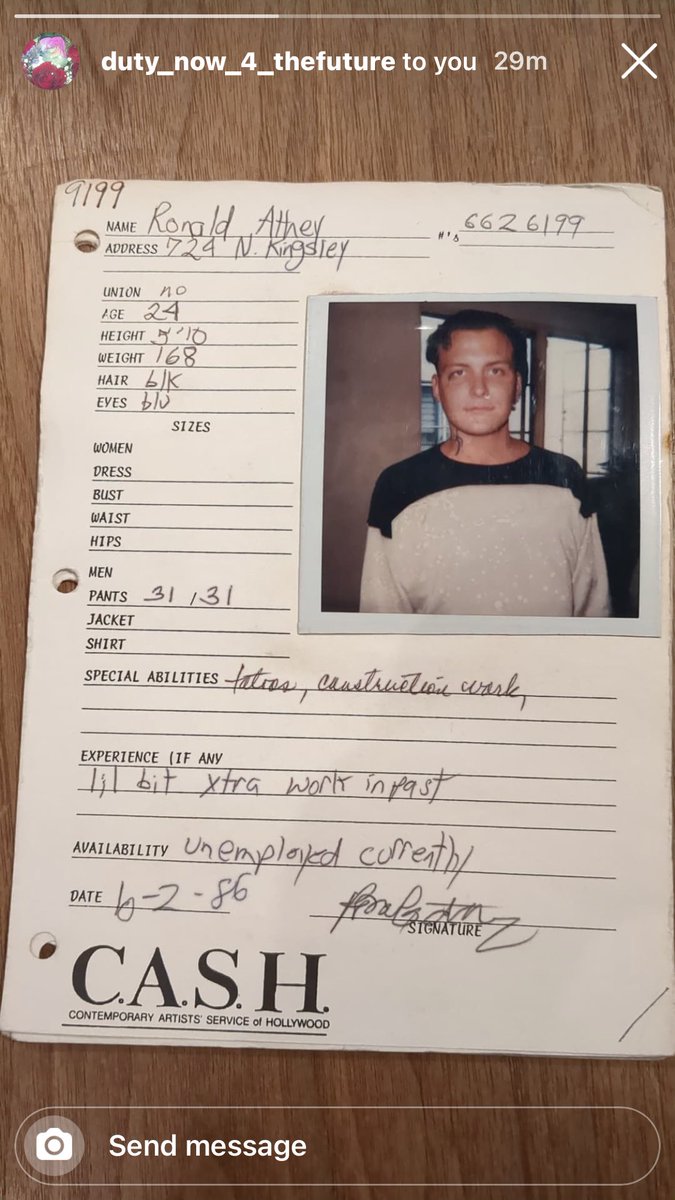 duty_now_4_thefuture to you 29m
9199
NAME Ronald Athey #'s 662 6199
ADDRESS 724 N. Kingsley
UNION no
AGE 24
HEIGHT 5'10
WEIGHT 168
HAIR blk
EYES blu
SIZES
WOMEN
DRESS
BUST
WAIST
HIPS
MEN
PANTS 31/31
JACKET
SHIRT
SPECIAL ABILITIES tatoos, caustruction work,
EXPERIENCE (IF ANY
lil bit xtra work in past
AVAILABILITY unemployed currently
DATE 6-2-86
SIGNATURE
C.A.S.H.
CONTEMPORARY ARTISTS' SERVICE of HOLLYWOOD
Send message